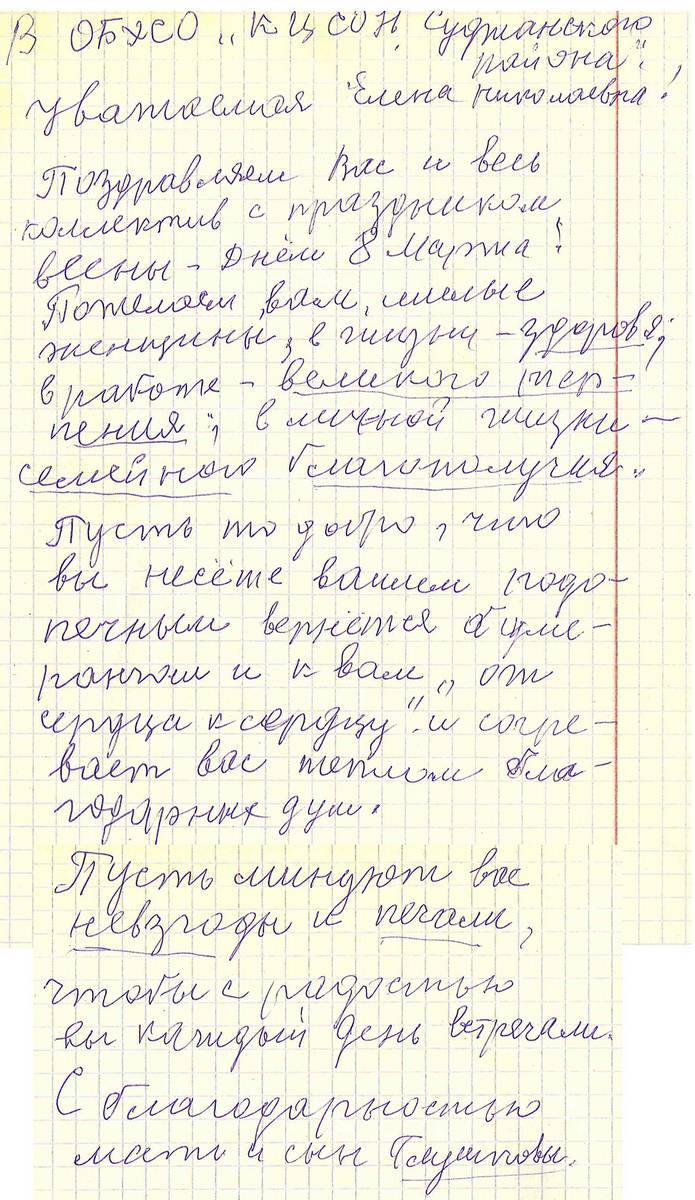 В ОБУСО „КЦСОН Суджанского
района".
Уважаемая Елена Николаевна!
Поздравляем Вас и весь
коллектив с праздником
весны - Днём 8 Марта!
Пожелаем вам, милые
женщины, в жизни - здоровья;
в работе - великого тер-
пения; в личной жизни -
семейного благополучия.
Пусть то добро, что
вы несёте вашем подо-
печным вернётся бумме-
рангом и к вам „от
сердца к сердцу" и согре-
вает вас теплом бла-
годарных душ.
Пусть минуют вас
невзгоды и печали,
чтобы с радостью
вы каждый день встречали.
С благодарностью
мать и сын